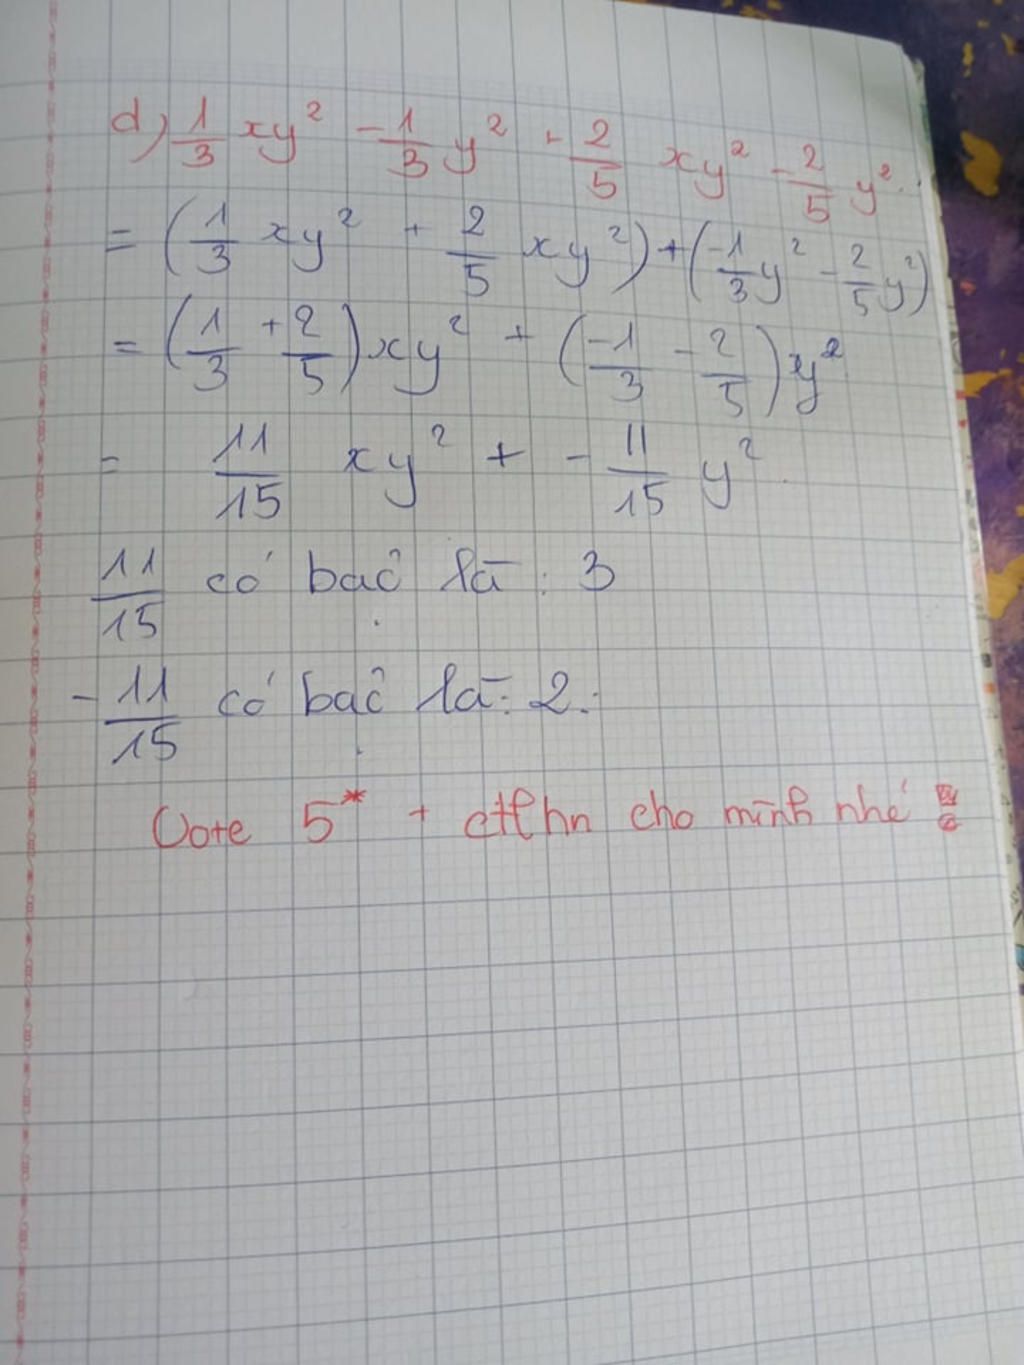 d) 1/3 xy² - 1/3 y² + 2/5 xy² - 2/5 y².
= (1/3 xy² + 2/5 xy²) + (-1/3 y² - 2/5 y²)
= (1/3 + 2/5) xy² + (-1/3 - 2/5) y²
= 11/15 xy² + - 11/15 y².
11/15 có bậc là : 3
- 11/15 có bậc là : 2.
Vote 5* + ctlhn cho mình nhé